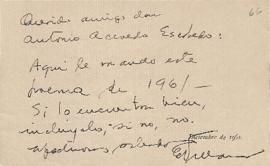 66
Querido amigo don
Antonio Acevedo Escobedo:
Aquí le mando este
poema de 1961-
Si lo encuentra bien,
inclúyalo; si no, no.
Diciembre de 1961.